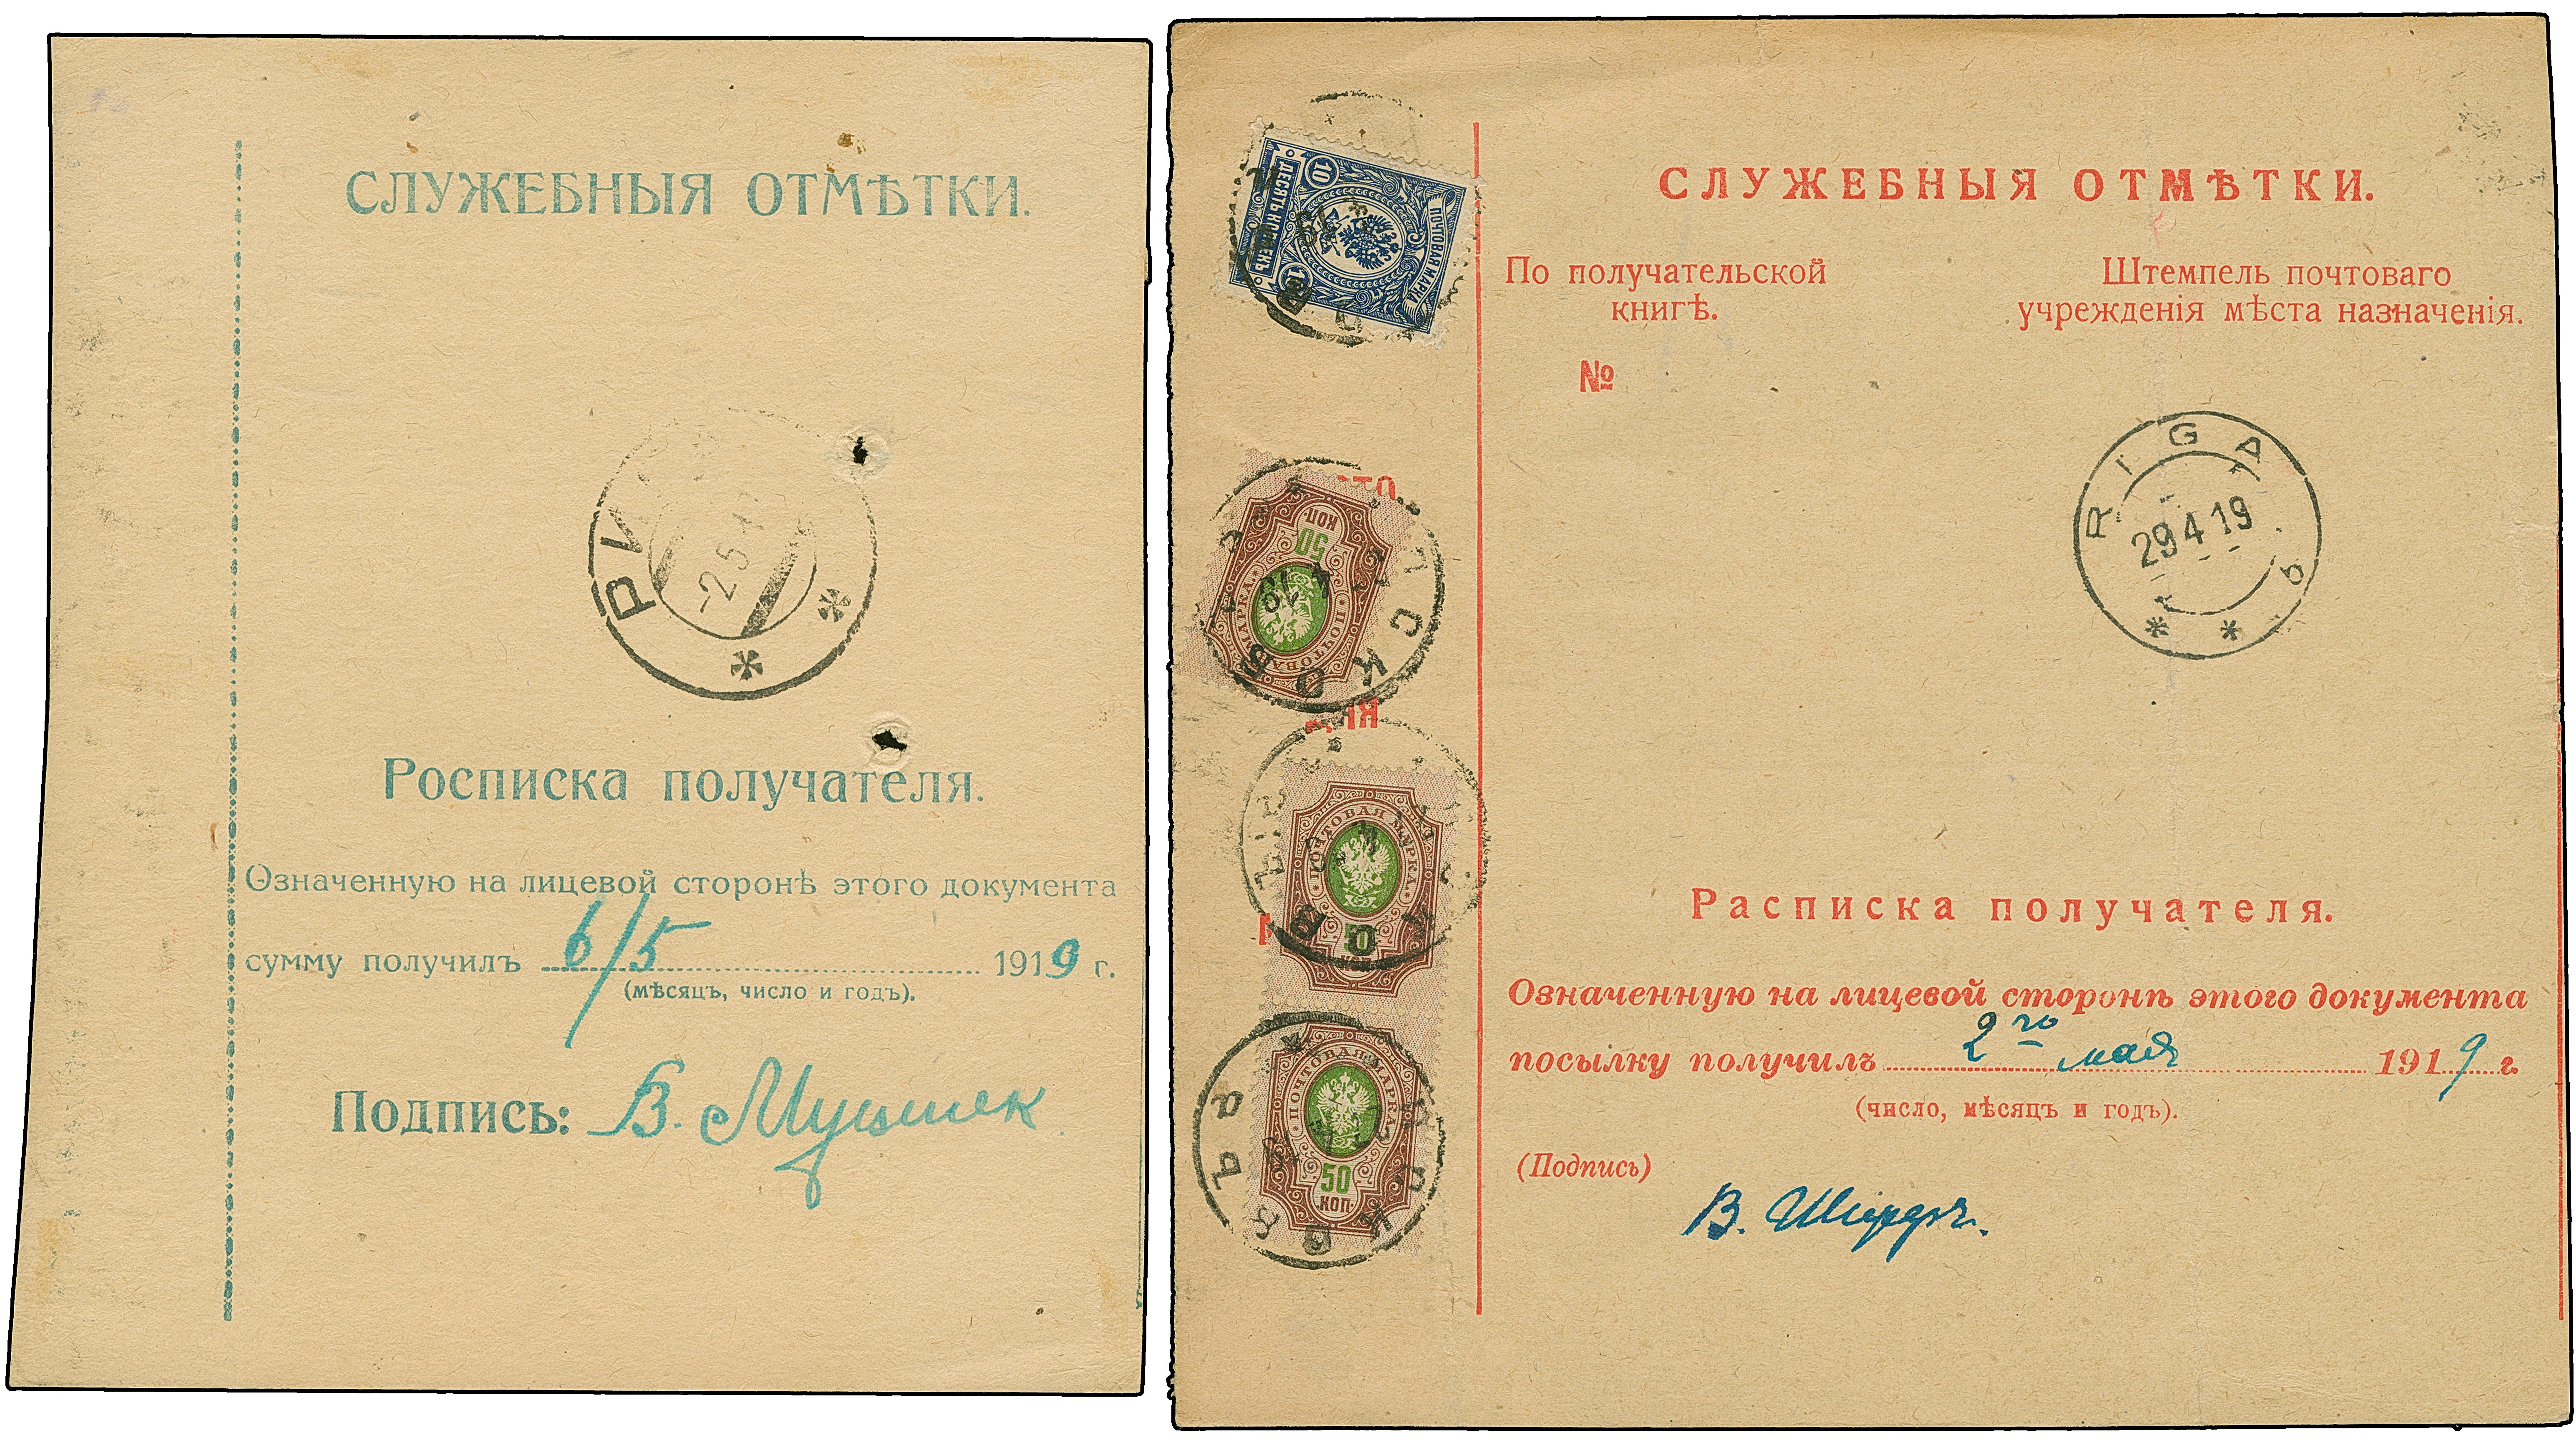 СЛУЖЕБНЫЯ ОТМѢТКИ.
-2 5 1
Росписка получателя.
Означенную на лицевой сторонѣ этого документа
сумму получилъ 6/5 1919 г.
(мѣсяцъ, число и годъ).
Подпись: В.
СЛУЖЕБНЫЯ ОТМѢТКИ.
По получательской
книгѣ.
№
Штемпель почтоваго
учрежденія мѣста назначенія.
RIGA
29 4 19
ПОЧТОВАЯ МАРКА
10
ДЕСЯТЬ КОПѢЕКЪ
10
ПОЧТОВАЯ МАРКА
50
КОП
МОСКВА
4 19
ПОЧТОВАЯ МАРКА
50
КОП
ПОЧТОВАЯ МАРКА
50
КОП
Расписка получателя.
Означенную на лицевой сторонѣ этого документа
посылку получилъ 2го мая 1919 г.
(число, мѣсяцъ и годъ).
(Подпись)
В.